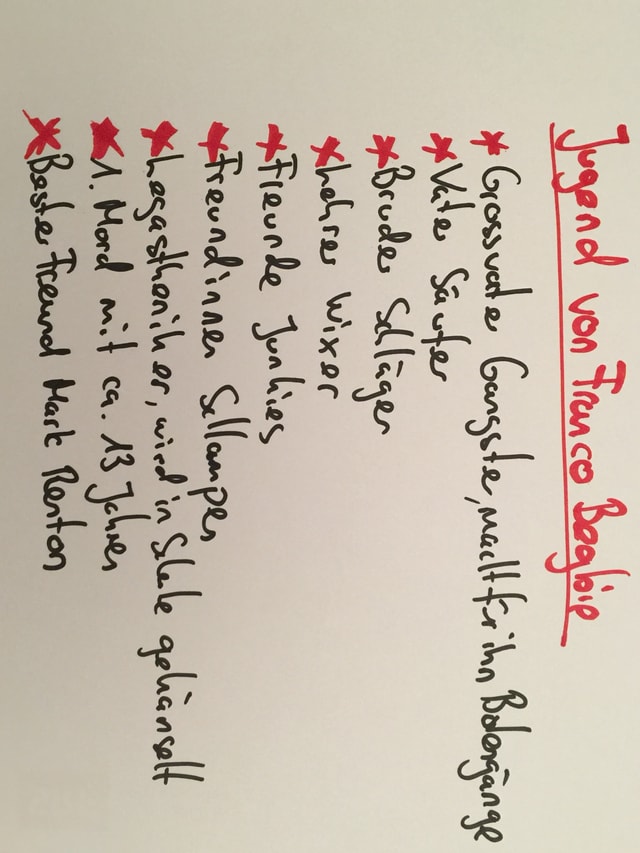 Jugend von Franco Begbie
* Grossvater Gangster, macht für ihn Botengänge
* Vater Säufer
* Bruder Schläger
* Lehrer Wixer
* Freunde Junkies
* Freundinnen Schlampen
* Legastheniker, wird in Schule gehänselt
* 1. Mord mit ca. 13 Jahren
* Bester Freund Mark Renton